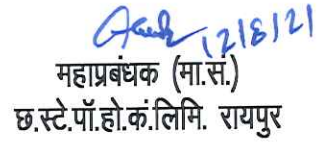 12/8/21
महाप्रबंधक (मा.सं.)
छ.स्टे.पॉ.हो.कं.लिमि. रायपुर